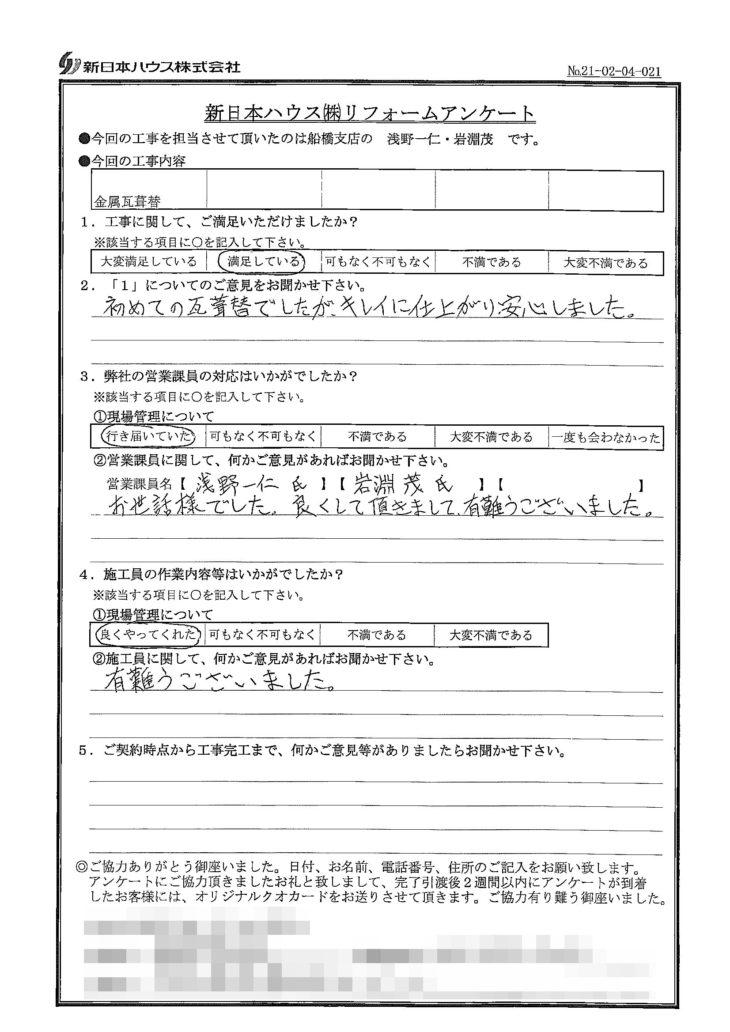 新日本ハウス株式会社
№21-02-04-021
新日本ハウス㈱リフォームアンケート
●今回の工事を担当させて頂いたのは船橋支店の　浅野一仁・岩淵茂　です。
●今回の工事内容
金属瓦葺替
1．工事に関して、ご満足いただけましたか？
※該当する項目に〇を記入して下さい。
大変満足している　満足している　可もなく不可もなく　不満である　大変不満である
2．「1」についてのご意見をお聞かせ下さい。
初めての瓦葺替でしたが、キレイに仕上がり安心しました。
3．弊社の営業課員の対応はいかがでしたか？
※該当する項目に〇を記入して下さい。
①現場管理について
行き届いていた　可もなく不可もなく　不満である　大変不満である　一度も会わなかった
②営業課員に関して、何かご意見があればお聞かせ下さい。
営業課員名【 浅野一仁 氏 】【 岩淵 茂 氏 】【 】
お世話様でした。良くして頂きまして、有難うございました。
4．施工員の作業内容等はいかがでしたか？
※該当する項目に〇を記入して下さい。
①現場管理について
良くやってくれた　可もなく不可もなく　不満である　大変不満である
②施工員に関して、何かご意見があればお聞かせ下さい。
有難うございました。
5．ご契約時点から工事完工まで、何かご意見等がありましたらお聞かせ下さい。
◎ご協力ありがとう御座いました。日付、お名前、電話番号、住所のご記入をお願い致します。
アンケートにご協力頂きましたお礼と致しまして、完了引渡後2週間以内にアンケートが到着
したお客様には、オリジナルクオカードをお送りさせて頂きます。ご協力有り難う御座いました。